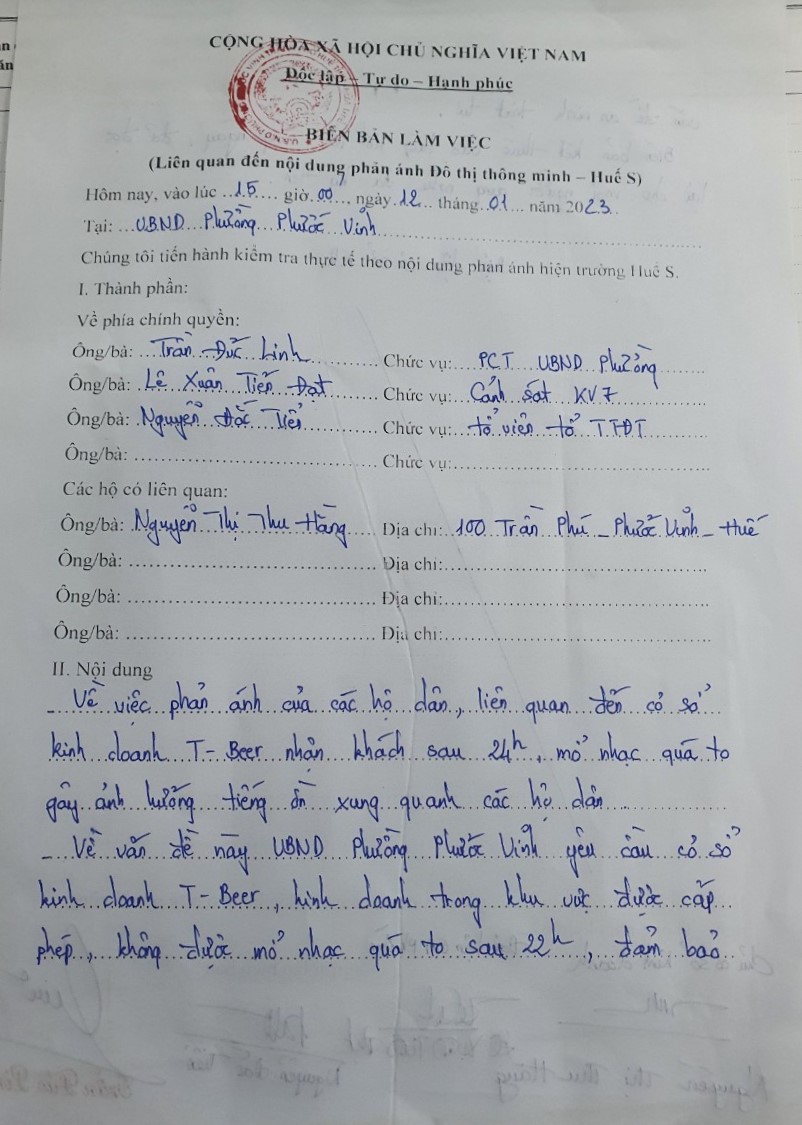 CỘNG HÒA XÃ HỘI CHỦ NGHĨA VIỆT NAM
Độc lập – Tự do – Hạnh phúc
BIÊN BẢN LÀM VIỆC
(Liên quan đến nội dung phản ánh Đô thị thông minh – Huế S)
Hôm nay, vào lúc ..15.... giờ.00.., ngày.12.. tháng..01... năm 2023..
Tại: ...UBND...Phường...Phước Vĩnh...
Chúng tôi tiến hành kiểm tra thực tế theo nội dung phản ánh hiện trường Huế S.
I. Thành phần:
Về phía chính quyền:
Ông/bà: ...Trần Đức Linh............... Chức vụ:....PCT UBND Phường........
Ông/bà: .Lê Xuân Tiến Đạt............ Chức vụ:...Cảnh sát KV7................
Ông/bà: .Nguyễn Đắc............ Chức vụ:...tổ viên tổ TTĐT..........
Ông/bà: ........................................ Chức vụ:..........................................
Các hộ có liên quan:
Ông/bà: .Nguyễn Thị Thu Hằng..... Địa chỉ:..100 Trần Phú – Phước Vĩnh – Huế
Ông/bà: ......................................... Địa chỉ:...........................................
Ông/bà: ......................................... Địa chỉ:...........................................
Ông/bà: ......................................... Địa chỉ:...........................................
II. Nội dung
– Về việc phản ánh của các hộ dân, liên quan đến cơ sở
kinh doanh T-Beer nhận khách sau 24h, mở nhạc quá to
gây ảnh hưởng tiếng ồn xung quanh các hộ dân.
– Về vấn đề này UBND Phường Phước Vĩnh yêu cầu cơ sở
kinh doanh T-Beer, kinh doanh trong khu vực được cấp
phép, không được mở nhạc quá to sau 22h, đảm bảo